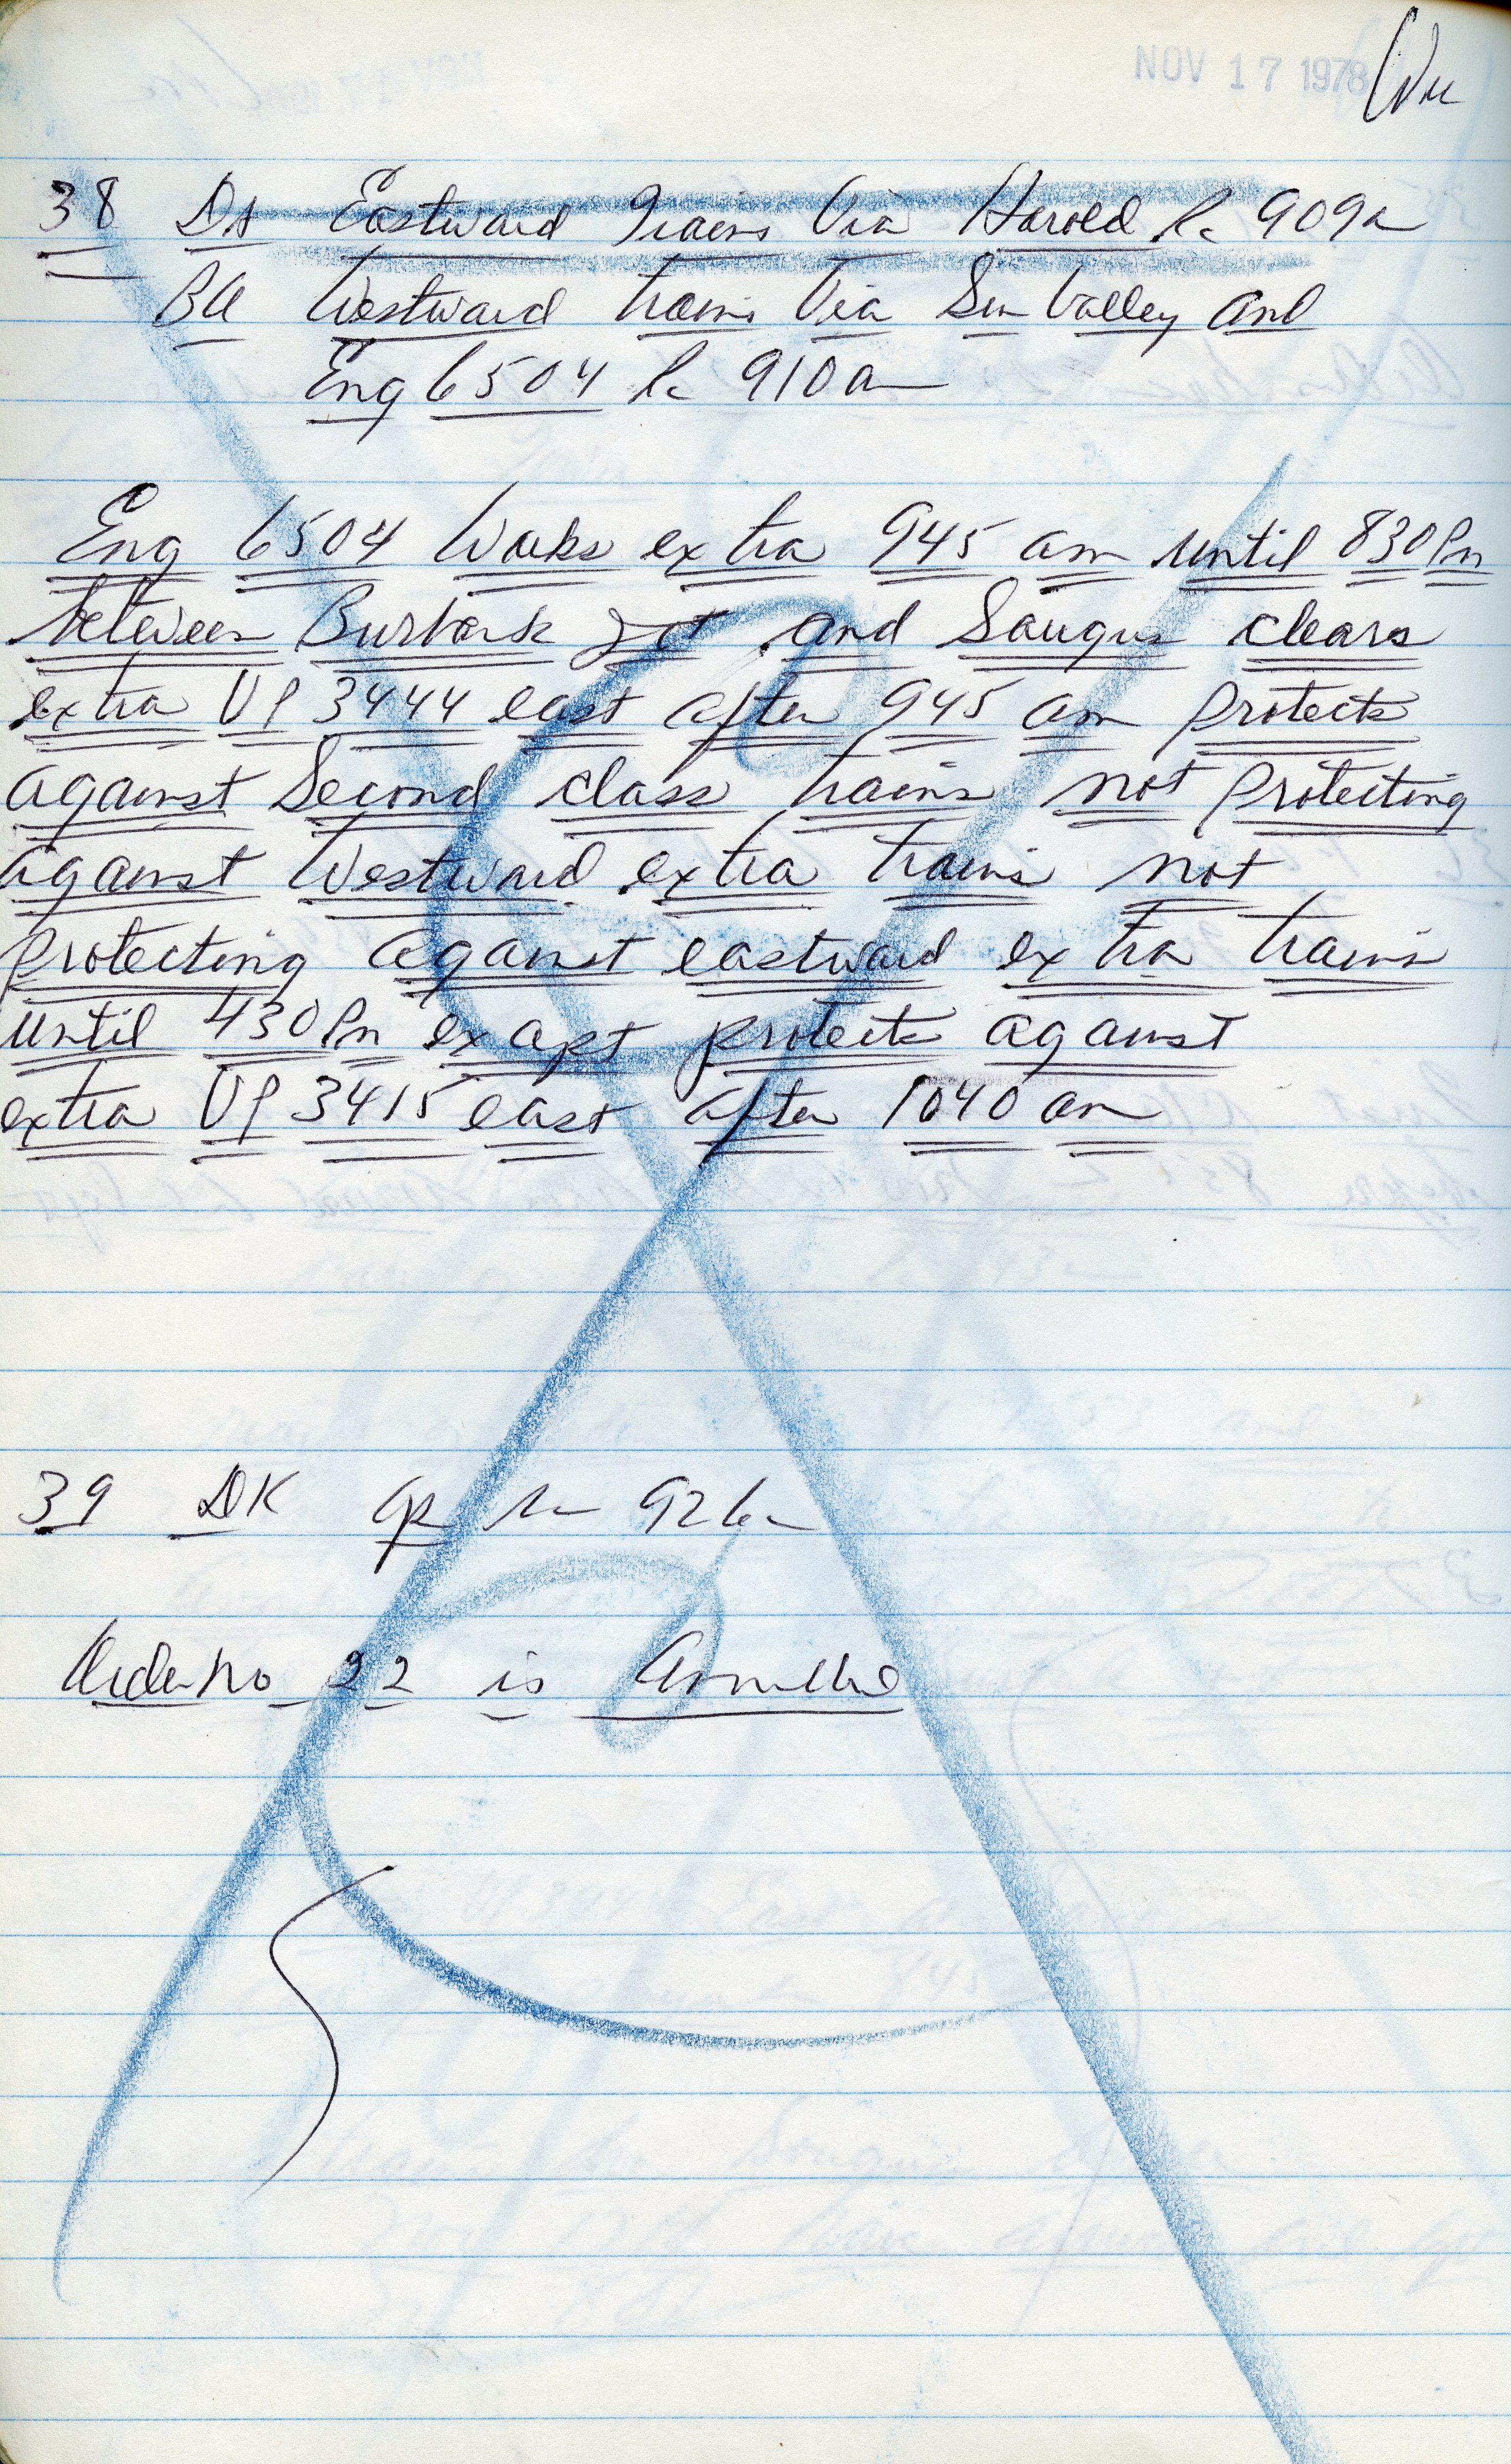 NOV 17 1978
38 DA Eastward Trains Via Harold R 909a
BU Westward trains Via Sun Valley and
Eng 6504 R 910a
Eng 6504 Works extra 945 am until 830 Pm
between Burbank Jct and Saugus clears
extra UP 3444 east after 945 am Protects
against Second class trains not Protecting
against Westward extra trains not
Protecting against eastward extra trains
until 430 Pm except protects against
extra UP 3415 east after 1040 am
39 DK 926a
Order No 22 is Annulled